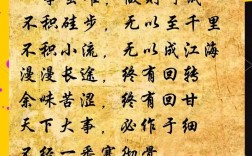 不积硅步，无以至千里
不积小流，无以成江海
漫漫长途，终有回转
余味苦涩，终有回甘
天下大事，必作于细
不经一番寒彻骨